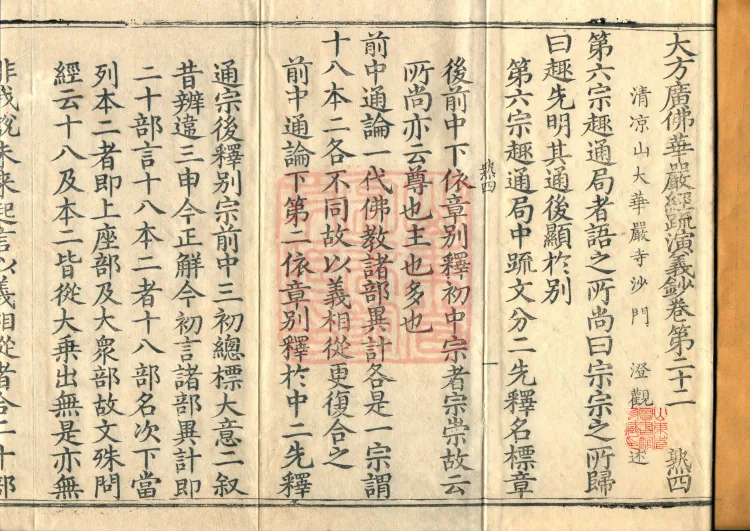 大方廣佛華嚴經疏演義鈔卷第二十二 熟四
清凉山大華嚴寺沙門 澄觀 述
第六宗趣通局者語之所尚曰宗宗之所歸
曰趣先明其通後顯於別
第六宗趣通局中䟽文分二先釋名標章
熟四 一
後前中下依章別釋初中宗者宗崇故云
所尚亦云尊也主也多也
前中通論一代佛教諸部異計各是一宗謂
十八本二各不同故以義相從更復合之
前中通論下第二依章別釋於中二先釋
通宗後釋別宗前中三初總標大意二叙
昔辨違三申今正解今初言諸部異計即
二十部言十八本二者十八部名次下當
列本二者即上座部及大衆部故文殊問
經云十八及本二皆從大乗出無是亦無
非我說未來起言以義相從者合二十部